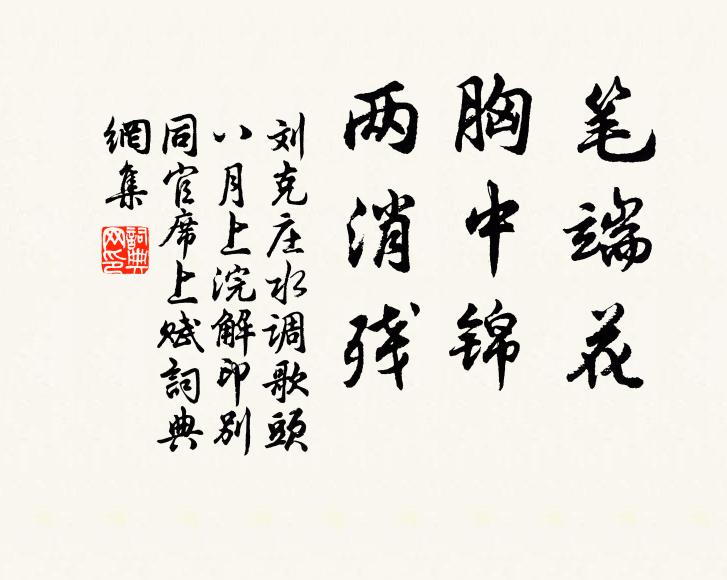 笔端花
胸中锦
两消残
刘克庄水调歌头
八月上浣解印别
同官席上赋词典
網集
詞典网印